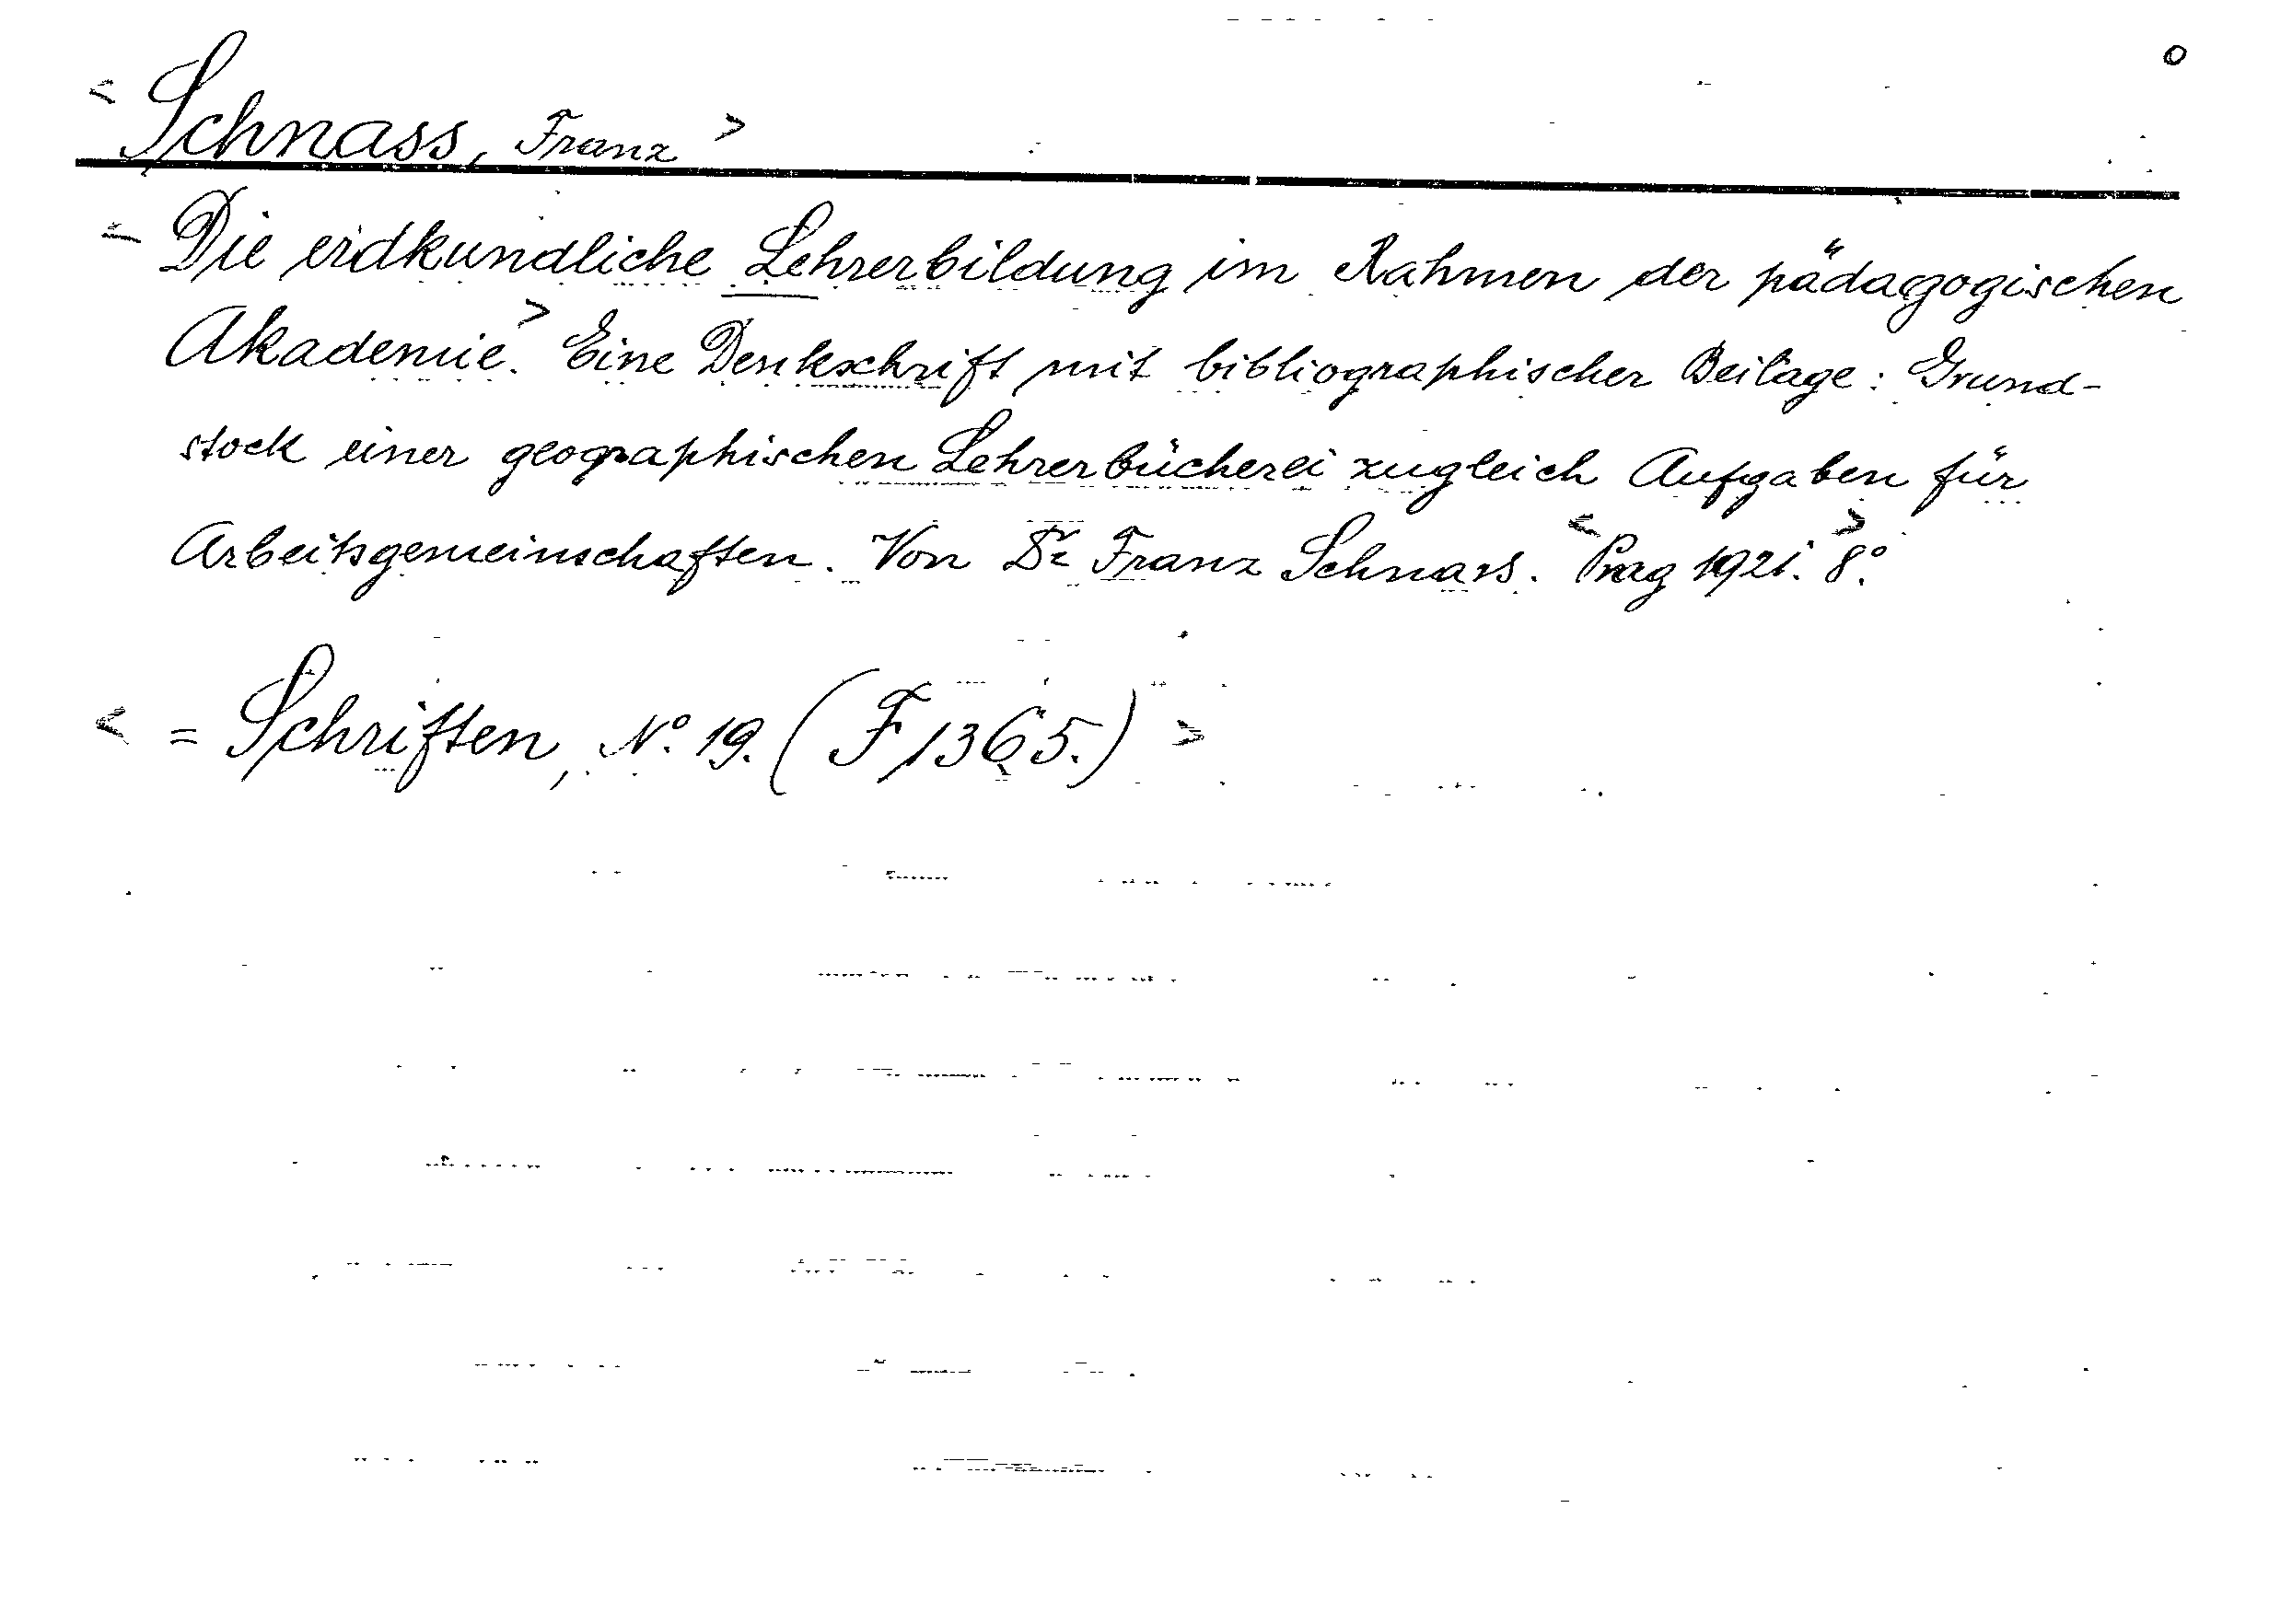 o
< Schnass, Franz >
= Die erdkundliche Lehrerbildung im Rahmen der pädagogischen
Akademie.> Eine Denkschrift mit bibliographischer Beilage: Grund-
stock einer geographischen Lehrerbücherei zugleich Aufgaben für
Arbeitsgemeinschaften. Von Dr Franz Schnass. <Prag 1921. 8°.>
< = Schriften, No. 19. (F 1365.) >